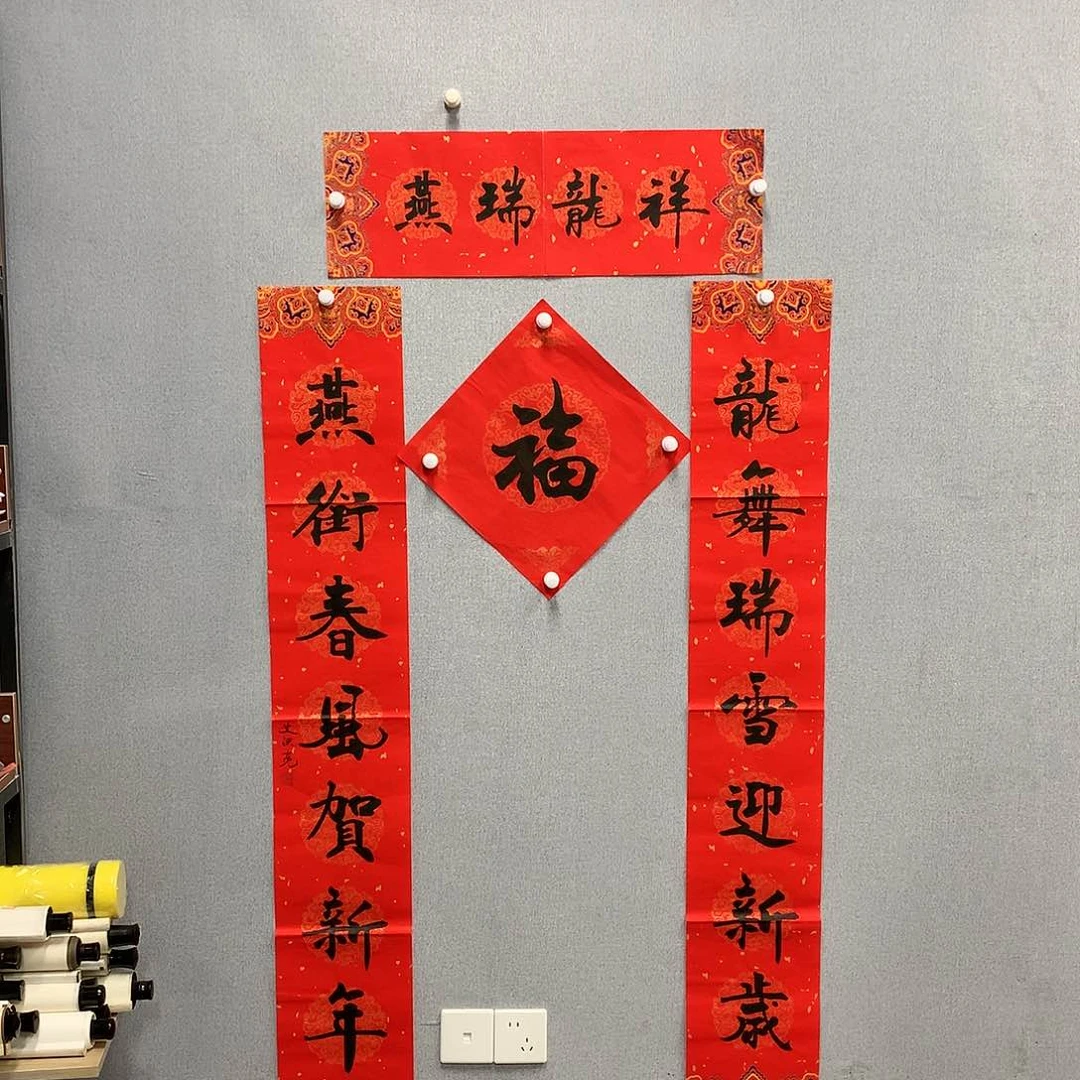 燕瑞龍祥
龍舞瑞雪迎新歲
燕銜春風賀新年
福